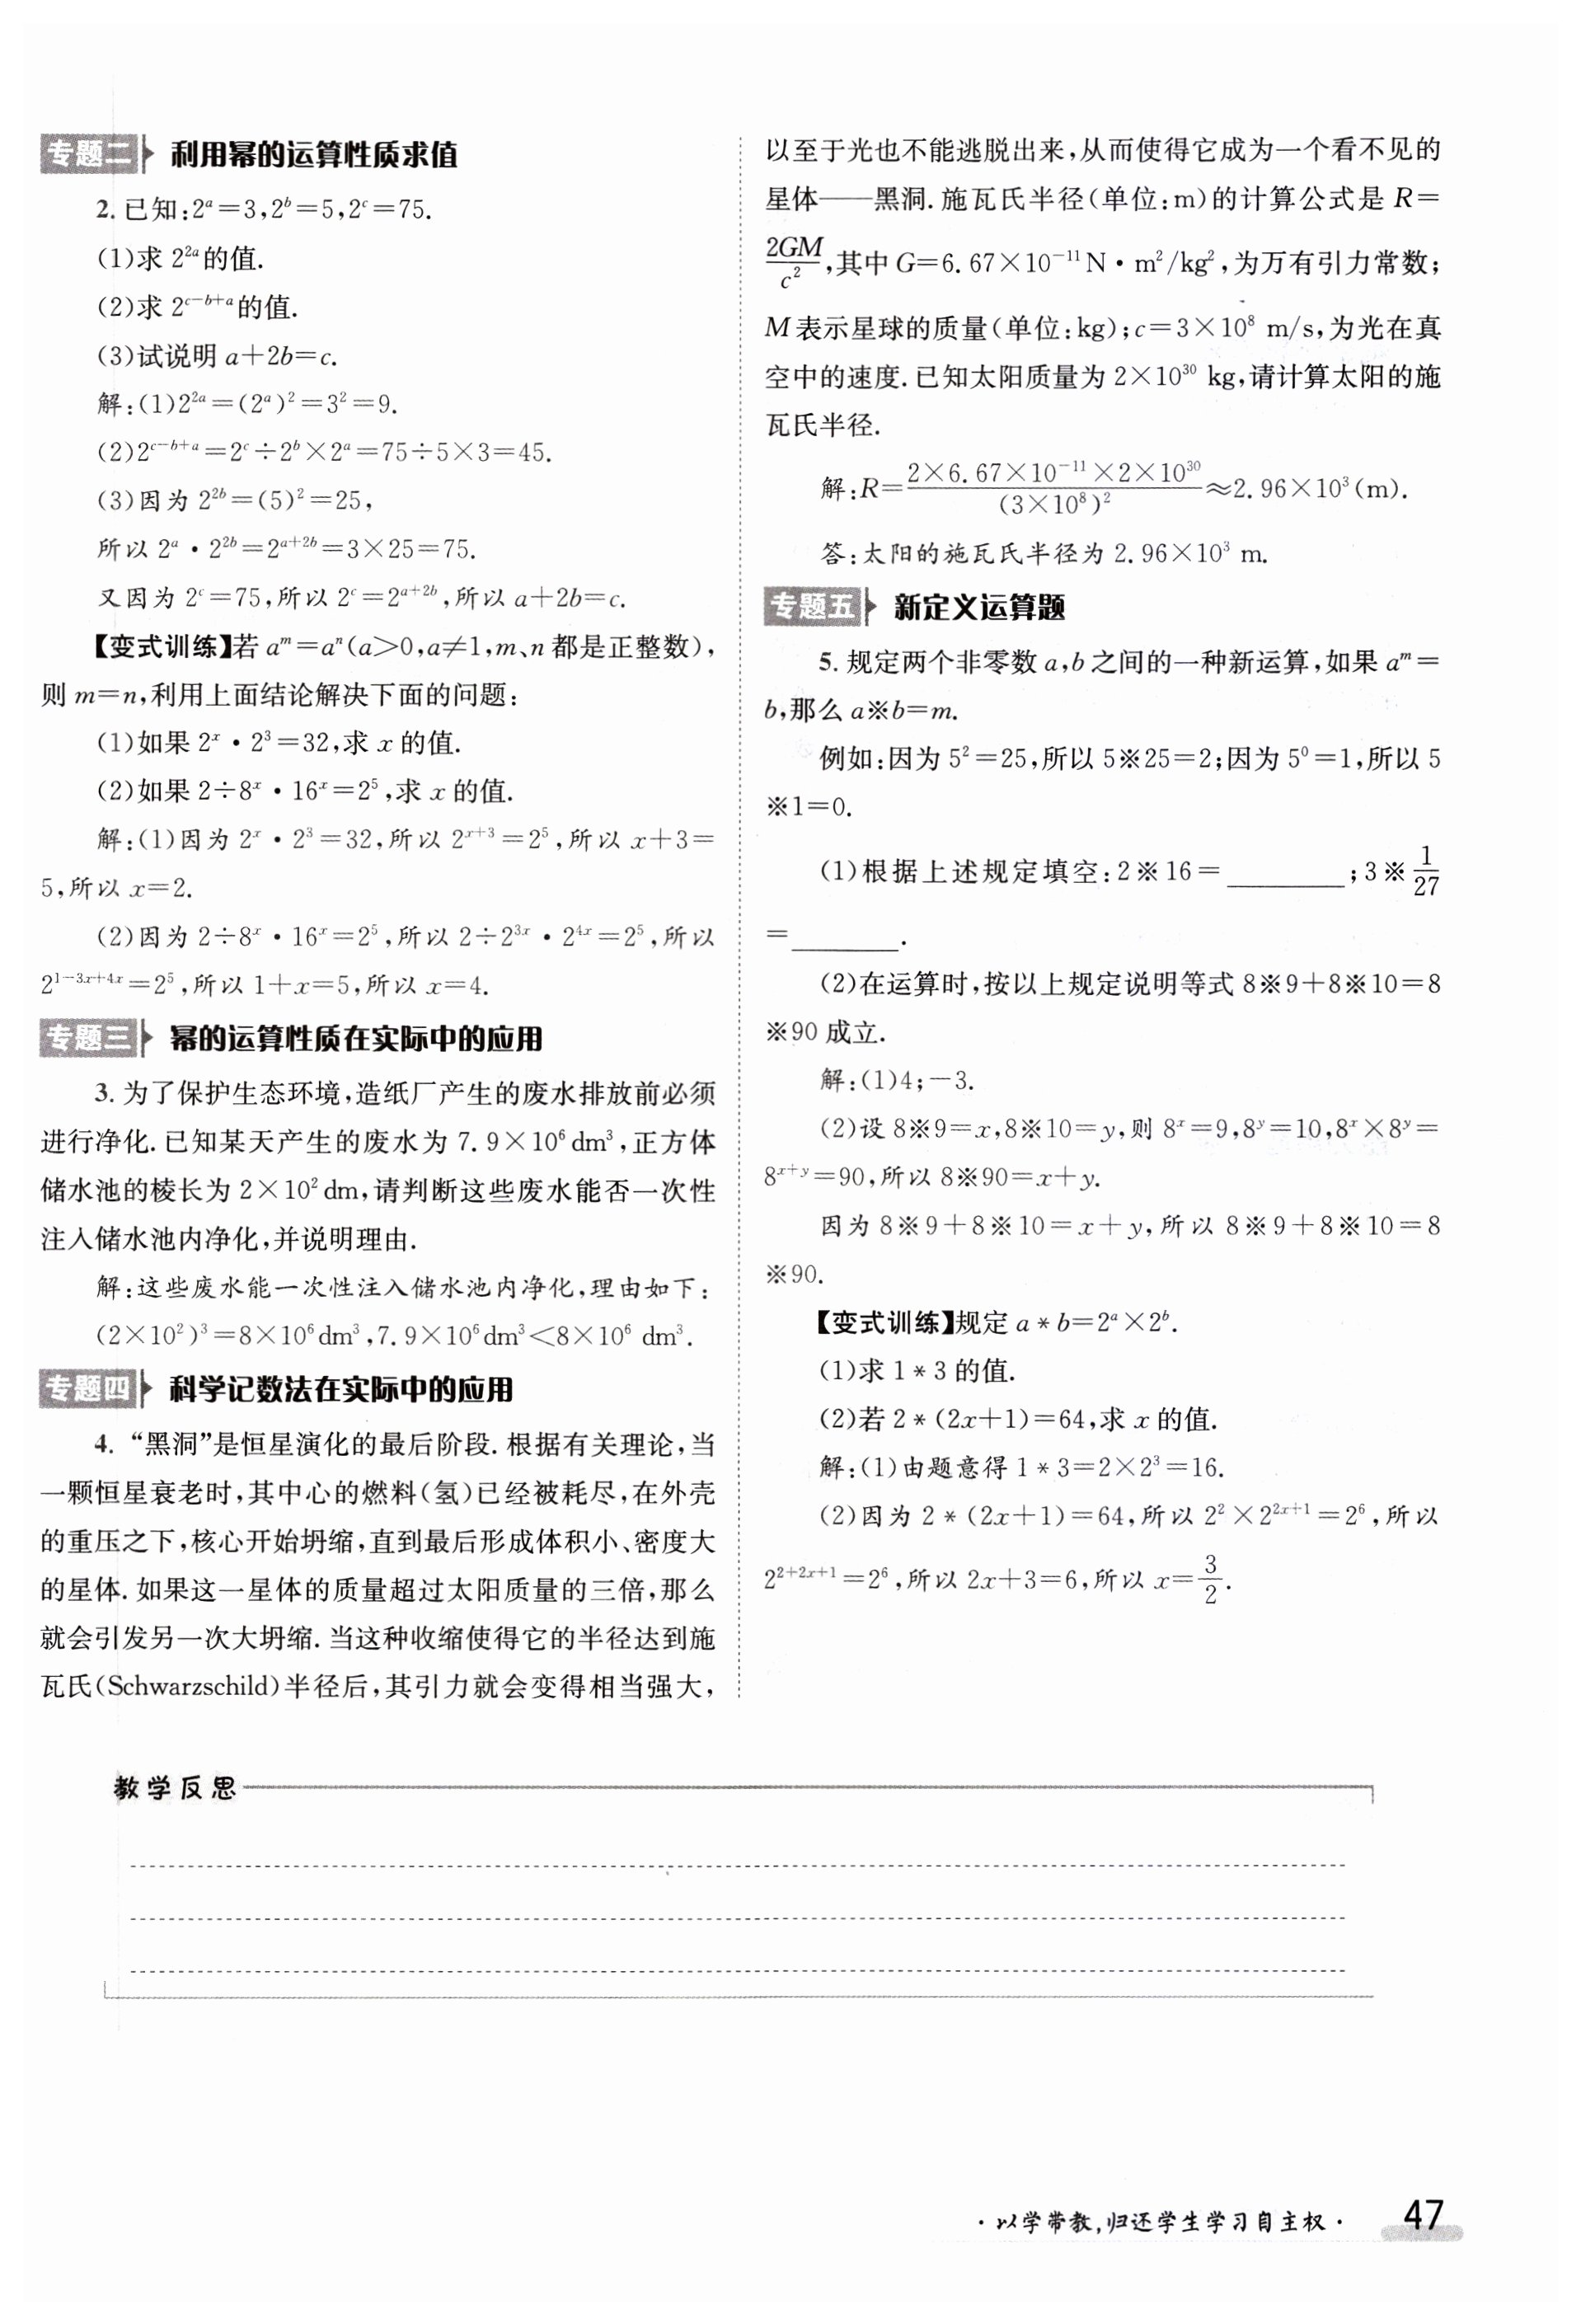 专题二 利用幂的运算性质求值
2. 已知:2ᵃ=3,2ᵇ=5,2ᶜ=75.
(1)求 2²ᵃ的值.
(2)求 2ᶜ⁻ᵇ⁺ᵃ的值.
(3)试说明 a+2b=c.
解:(1)2²ᵃ=(2ᵃ)²=3²=9.
(2)2ᶜ⁻ᵇ⁺ᵃ=2ᶜ÷2ᵇ×2ᵃ=75÷5×3=45.
(3)因为 2²ᵇ=(5)²=25,
所以 2ᵃ·2²ᵇ=2ᵃ⁺²ᵇ=3×25=75.
又因为 2ᶜ=75,所以 2ᶜ=2ᵃ⁺²ᵇ,所以 a+2b=c.
【变式训练】若 aᵐ=aⁿ(a>0,a≠1,m、n 都是正整数),
则 m=n,利用上面结论解决下面的问题:
(1)如果 2ˣ·2³=32,求 x 的值.
(2)如果 2÷8ˣ·16ˣ=2⁵,求 x 的值.
解:(1)因为 2ˣ·2³=32,所以 2ˣ⁺³=2⁵,所以 x+3=
5,所以 x=2.
(2)因为 2÷8ˣ·16ˣ=2⁵,所以 2÷2³ˣ·2⁴ˣ=2⁵,所以
2¹⁻³ˣ⁺⁴ˣ=2⁵,所以 1+x=5,所以 x=4.
专题三 幂的运算性质在实际中的应用
3. 为了保护生态环境,造纸厂产生的废水排放前必须
进行净化.已知某天产生的废水为 7.9×10⁶ dm³,正方体
储水池的棱长为 2×10² dm,请判断这些废水能否一次性
注入储水池内净化,并说明理由.
解:这些废水能一次性注入储水池内净化,理由如下:
(2×10²)³=8×10⁶ dm³,7.9×10⁶ dm³<8×10⁶ dm³.
专题四 科学记数法在实际中的应用
4. “黑洞”是恒星演化的最后阶段.根据有关理论,当
一颗恒星衰老时,其中心的燃料(氢)已经被耗尽,在外壳
的重压之下,核心开始坍缩,直到最后形成体积小、密度大
的星体.如果这一星体的质量超过太阳质量的三倍,那么
就会引发另一次大坍缩.当这种收缩使得它的半径达到施
瓦氏(Schwarzschild)半径后,其引力就会变得相当强大,
以至于光也不能逃脱出来,从而使得它成为一个看不见的
星体——黑洞.施瓦氏半径(单位:m)的计算公式是 R=
2GM/c²,其中 G=6.67×10⁻¹¹ N·m²/kg²,为万有引力常数;
M 表示星球的质量(单位:kg);c=3×10⁸ m/s,为光在真
空中的速度.已知太阳质量为 2×10³⁰ kg,请计算太阳的施
瓦氏半径.
解:R=(2×6.67×10⁻¹¹×2×10³⁰)/(3×10⁸)²≈2.96×10³(m).
答:太阳的施瓦氏半径为 2.96×10³ m.
专题五 新定义运算题
5. 规定两个非零数 a,b 之间的一种新运算,如果 aᵐ=
b,那么 a※b=m.
例如:因为 5²=25,所以 5※25=2;因为 5⁰=1,所以 5
※1=0.
(1)根据上述规定填空:2※16=______;3※1/27
=______.
(2)在运算时,按以上规定说明等式 8※9+8※10=8
※90 成立.
解:(1)4;-3.
(2)设 8※9=x,8※10=y,则 8ˣ=9,8ʸ=10,8ˣ×8ʸ=
8ˣ⁺ʸ=90,所以 8※90=x+y.
因为 8※9+8※10=x+y,所以 8※9+8※10=8
※90.
【变式训练】规定 a*b=2ᵃ×2ᵇ.
(1)求 1*3 的值.
(2)若 2*(2x+1)=64,求 x 的值.
解:(1)由题意得 1*3=2×2³=16.
(2)因为 2*(2x+1)=64,所以 2²×2²ˣ⁺¹=2⁶,所以
2²⁺²ˣ⁺¹=2⁶,所以 2x+3=6,所以 x=3/2.
教学反思
·以学带教,归还学生学习自主权· 47